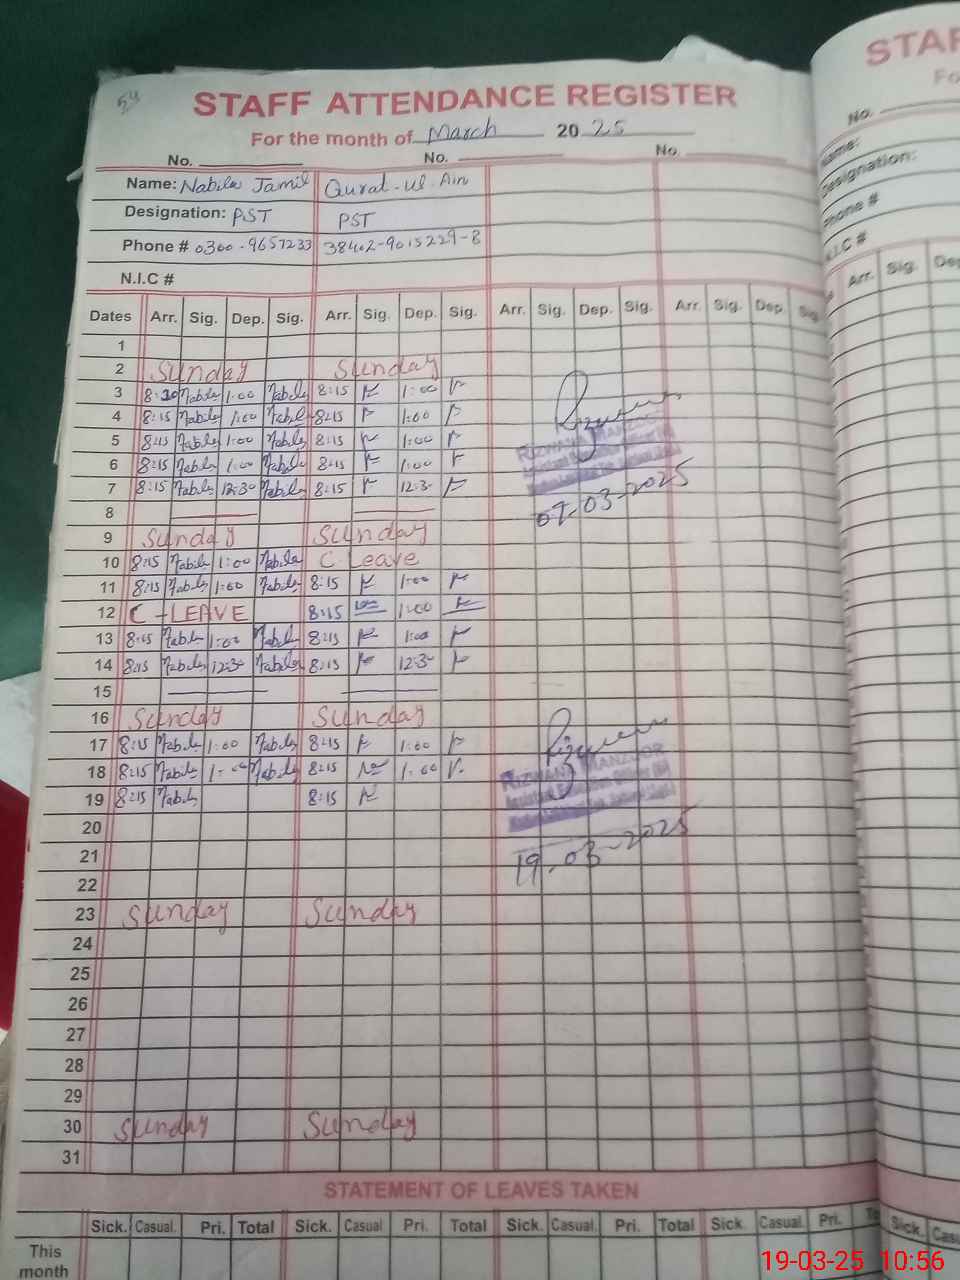 54
STAFF ATTENDANCE REGISTER
For the month of March 20 25
No. No. No.
Name: Nabila Jamil Qurat-ul-Ain
Designation: PST PST
Phone # 0300-9657233 38402-9015229-8
N.I.C #
Dates Arr. Sig. Dep. Sig. Arr. Sig. Dep. Sig. Arr. Sig. Dep. Sig. Arr. Sig. Dep. Sig.
1
2 Sunday Sunday
3 8:10 Nabila 1:00 Nabila 8:15 1:00
4 8:15 Nabila 1:00 Nabila 8:15 1:00
5 8:15 Nabila 1:00 Nabila 8:15 1:00
6 8:15 Nabila 1:00 Nabila 8:15 1:00
7 8:15 Nabila 12:30 Nabila 8:15 12:30
RIZWANA MANZOOR
07-03-2025
8
9 Sunday Sunday
10 8:15 Nabila 1:00 Nabila C Leave
11 8:15 Nabila 1:00 Nabila 8:15 1:00
12 C-LEAVE 8:15 1:00
13 8:15 Nabila 1:00 Nabila 8:15 1:00
14 8:15 Nabila 12:30 Nabila 8:15 12:30
15
16 Sunday Sunday
17 8:15 Nabila 1:00 Nabila 8:15 1:00
18 8:15 Nabila 1:00 Nabila 8:15 1:00
19 8:15 Nabila 8:15
RIZWANA MANZOOR
19-03-2025
20
21
22
23 Sunday Sunday
24
25
26
27
28
29
30 Sunday Sunday
31
STATEMENT OF LEAVES TAKEN
Sick. Casual. Pri. Total Sick. Casual Pri. Total Sick. Casual. Pri. Total Sick. Casual. Pri.
This
month
STAF
Fo
No.
Name:
Designation:
Phone #
N.I.C #
Arr. Sig. Dep
Sick.
19-03-25 10:56